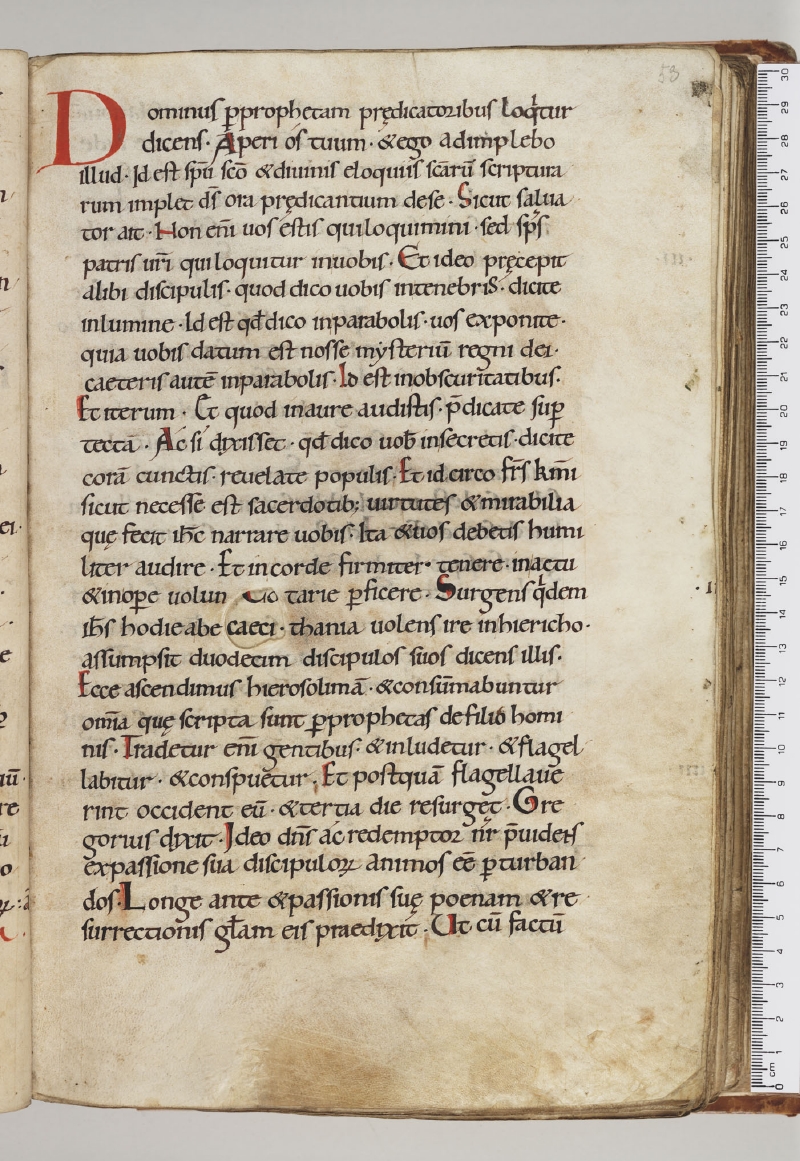 53
Dominus ꝑprophetam prędicatoribus loqͥtur
dicens· Aperi os tuum· &ego adimplebo
illud· Id est sp̅u sc̅o &diuinis eloquiis sc̅aru̅ scriptura
rum implet d̅s ora prędicantium dese· Sicut salua
tor ait· Non en̅i uos estis quiloquimini· sed sp̅s
patris ur̅i quiloquitur inuobis· Et ideo pręcepit
alibi discipulis· quod dico uobis intenebris· dicite
inlumine· Id est qd̅ dico inparabolis· uos exponite·
quia uobis datum est nosse mysteriu̅ regni dei·
caeteris aute̅ inparabolis· Id est inobscuritatibus·
Et iterum· Et quod inaure audistis· p̅dicate suꝑ
tecta· Ac si dixisset· qd̅ dico uob̅ insecretis· dicite
cora̅ cunctis· reuelate populis· Et idcirco fr̅s km̅i
sicut necesse est sacerdotib; uirtutes &mirabilia
quę fecit ih̅c narrare uobis· Ita &uos debetis humi
liter audire· Et incorde firmiter· tenere· inactu
&inoꝑe uolun tarie ꝑficere· Surgens qͥdem
ih̅s hodie abe caeci· thania uolens ire inhiericho·
assumpsit duodecim discipulos suos dicens illis·
Ecce ascendimus hierosolima̅· &consu̅mabuntur
om̅ia quę scripta sunt ꝑprophetas defilio homi
nis· Tradetur en̅i gentibus· &inludetur· &flagel
labitur· &conspuetur· Et postqua̅ flagellaue
rint occident eu̅· &tertia die resurget· Gre
gorius dixit· Ideo dn̅s ac redemptor nr̅ p̅uidens
expassione sua discipuloꝝ animos ee̅ ꝑturban
dos· Longe ante &passionis suę poenam &re
surrectionis gl̅am eis praedixit· Ut cu̅ factu̅